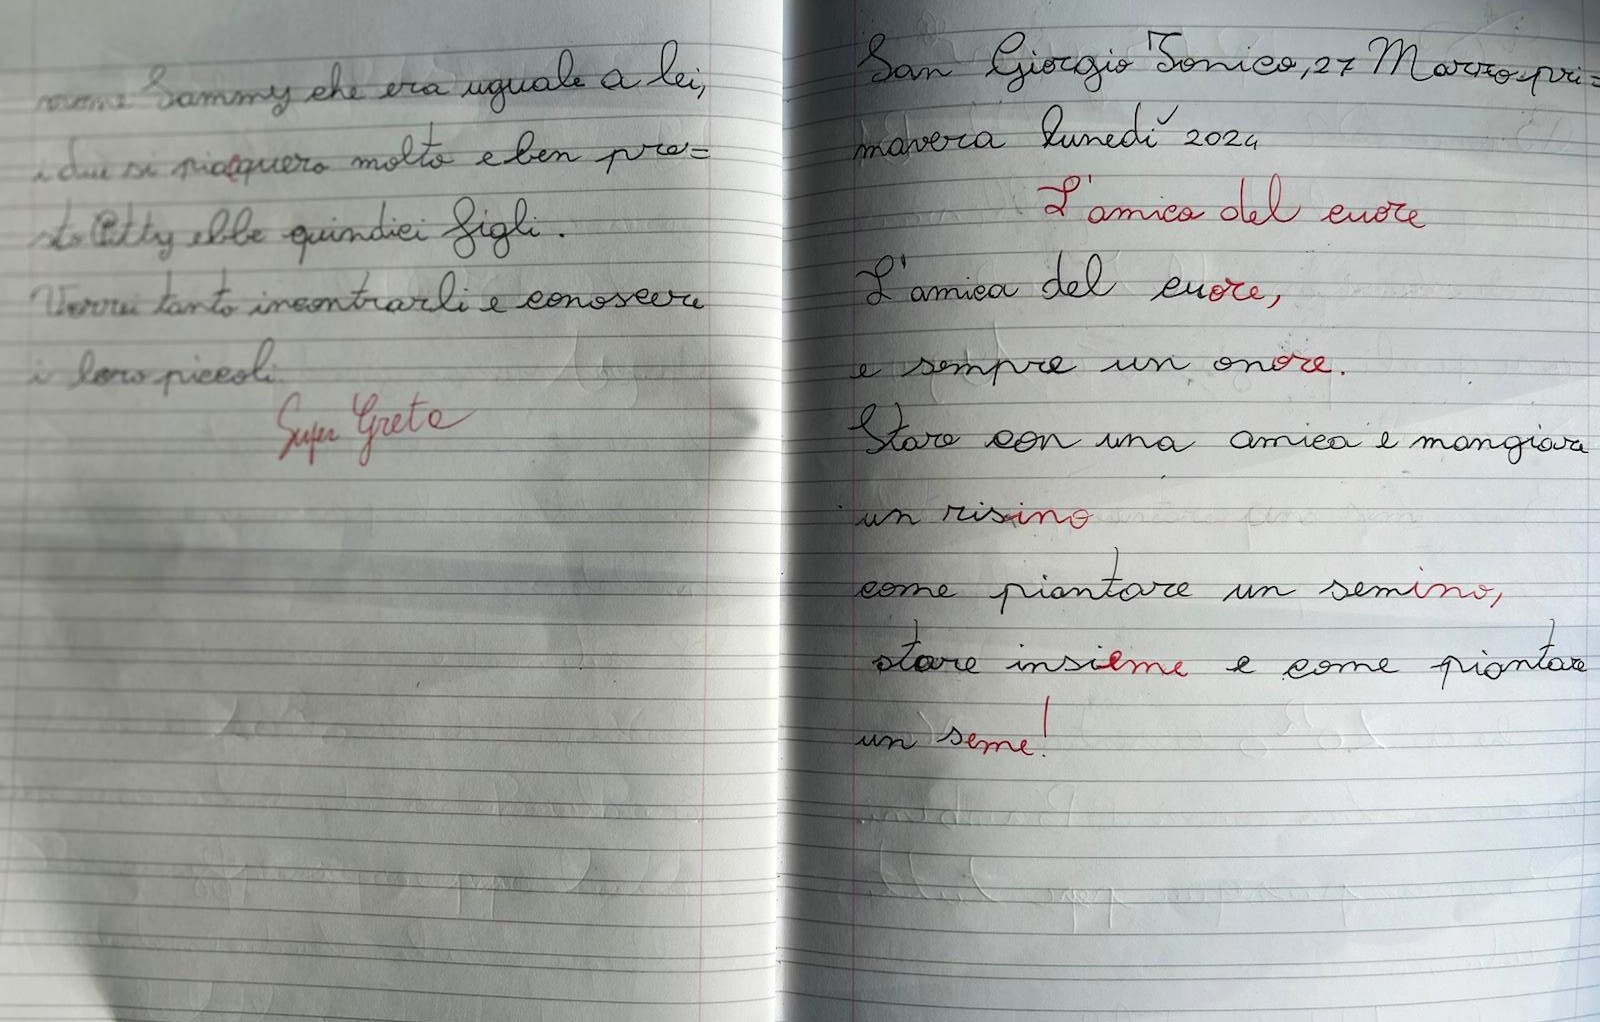 nome Sammy che era uguale a lei,
i due si piacquero molto e ben pre=
sto Citty ebbe quindici figli.
Vorrei tanto incontrarli e conoscere
i loro piccoli.
Super Greta
San Giorgio Jonico, 27 Marzo pri=
mavera lunedì 2024
L'amica del cuore
L'amica del cuore,
e sempre un onore.
Stare con una amica è mangiare
un risino
come piantare un semino,
stare insieme e come piantare
un seme!